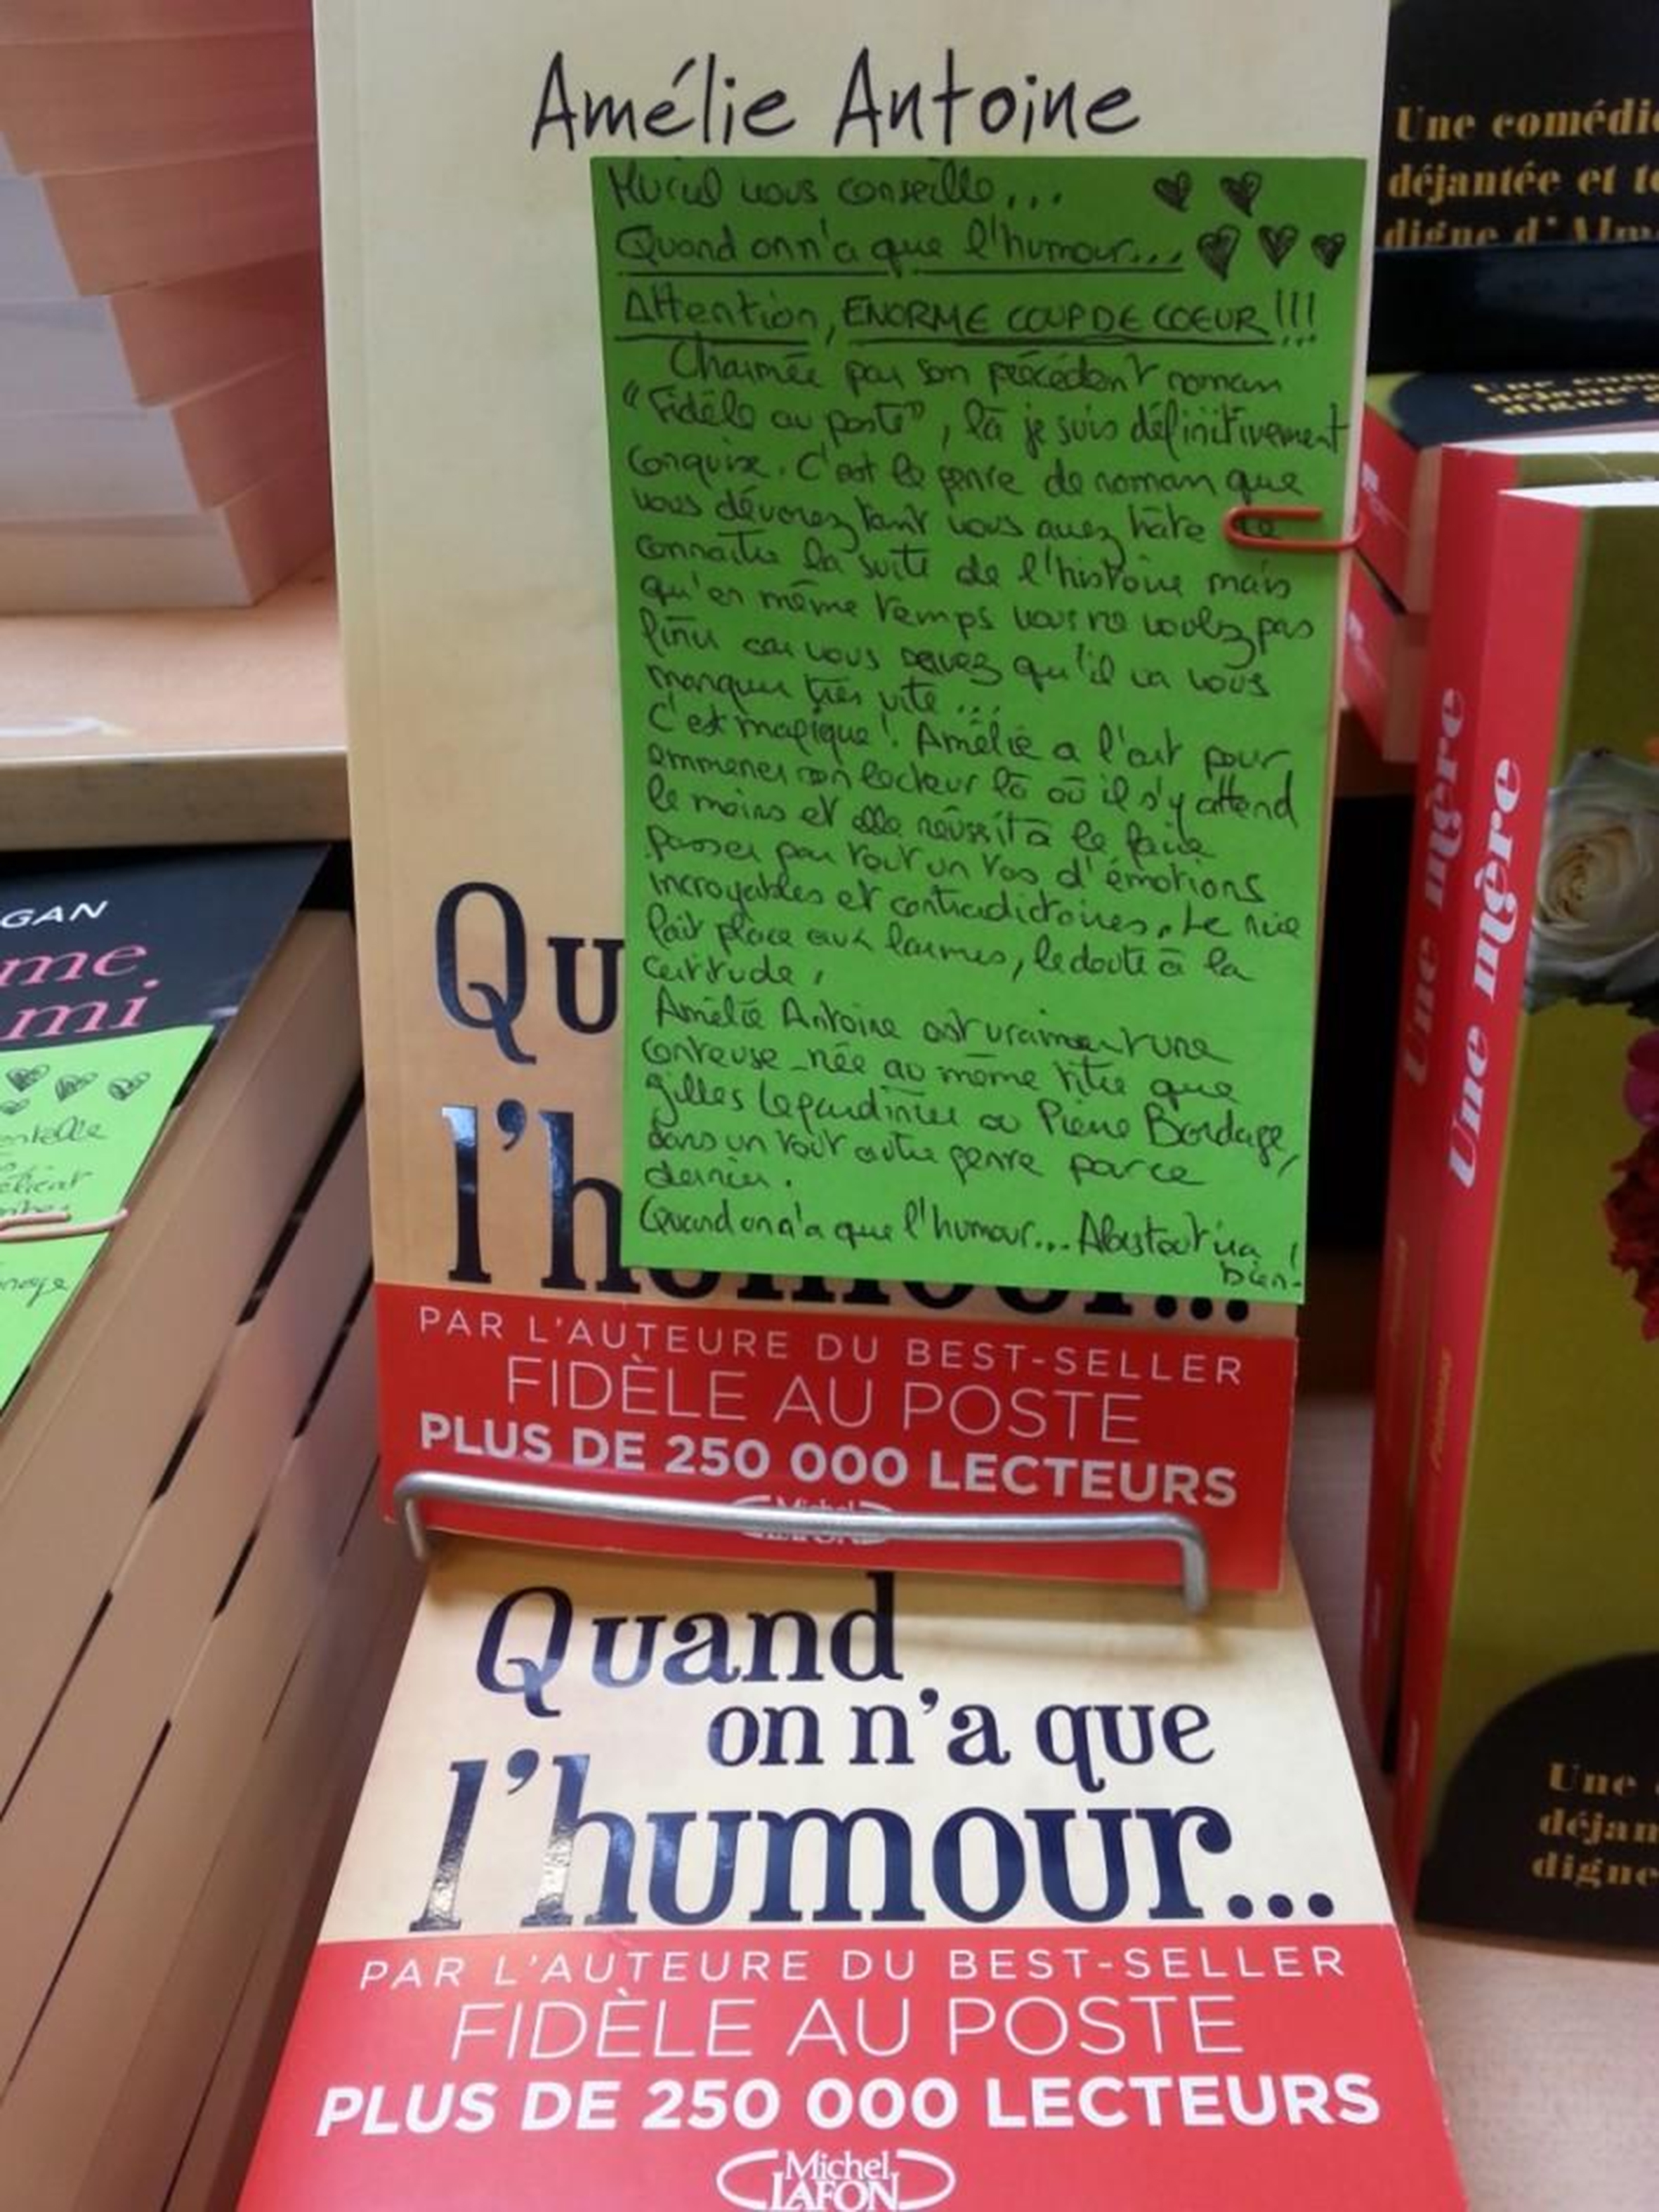 Amélie Antoine
Muriel vous conseille...
Quand on n'a que l'humour...
Attention, ENORME COUP DE COEUR !!!
Charmée par son précédent roman
"Fidèle au poste", là je suis définitivement
conquise. C'est le genre de roman que
vous dévorez tant vous avez hâte de
connaitre la suite de l'histoire mais
qu'en même temps vous ne voulez pas
finir car vous savez qu'il va vous
manquer très vite...
C'est magique! Amélie a l'art pour
emmener son lecteur là où il s'y attend
le moins et elle réussit à le faire
passer par tout un tas d'émotions
incroyables et contradictoires. Le rire
fait place aux larmes, le doute à la
certitude,
Amélie Antoine est vraiment une
conteuse-née au même titre que
Gilles Legardinier ou Pierre Bordage,
dans un tout autre genre par ce
dernier.
Quand on n'a que l'humour... Alors tout va
bien!
Qu
l'humour...
PAR L'AUTEURE DU BEST-SELLER
FIDÈLE AU POSTE
PLUS DE 250 000 LECTEURS
Michel
LAFON
Quand
on n'a que
l'humour...
PAR L'AUTEURE DU BEST-SELLER
FIDÈLE AU POSTE
PLUS DE 250 000 LECTEURS
Michel
LAFON
GAN
me
mi
Une comédie
déjantée et
digne d'
Une mère
Une mère
Une
déjan
digne